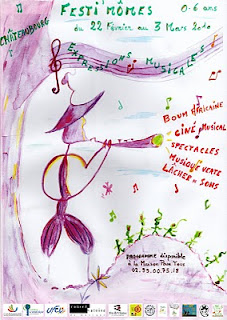 FESTI'MÔMES
0-6 ans
CHÂTEAUBOURG
du 22 Février au 3 Mars 2010
EXPRESSIONS MUSICALES
BOUM AFRICAINE
CINÉ MUSICAL
SPECTACLES
MUSIQUE VERTE
LÂCHER DE SONS
programme disponible
à la Maison Pour Tous
02.99.00.75.18